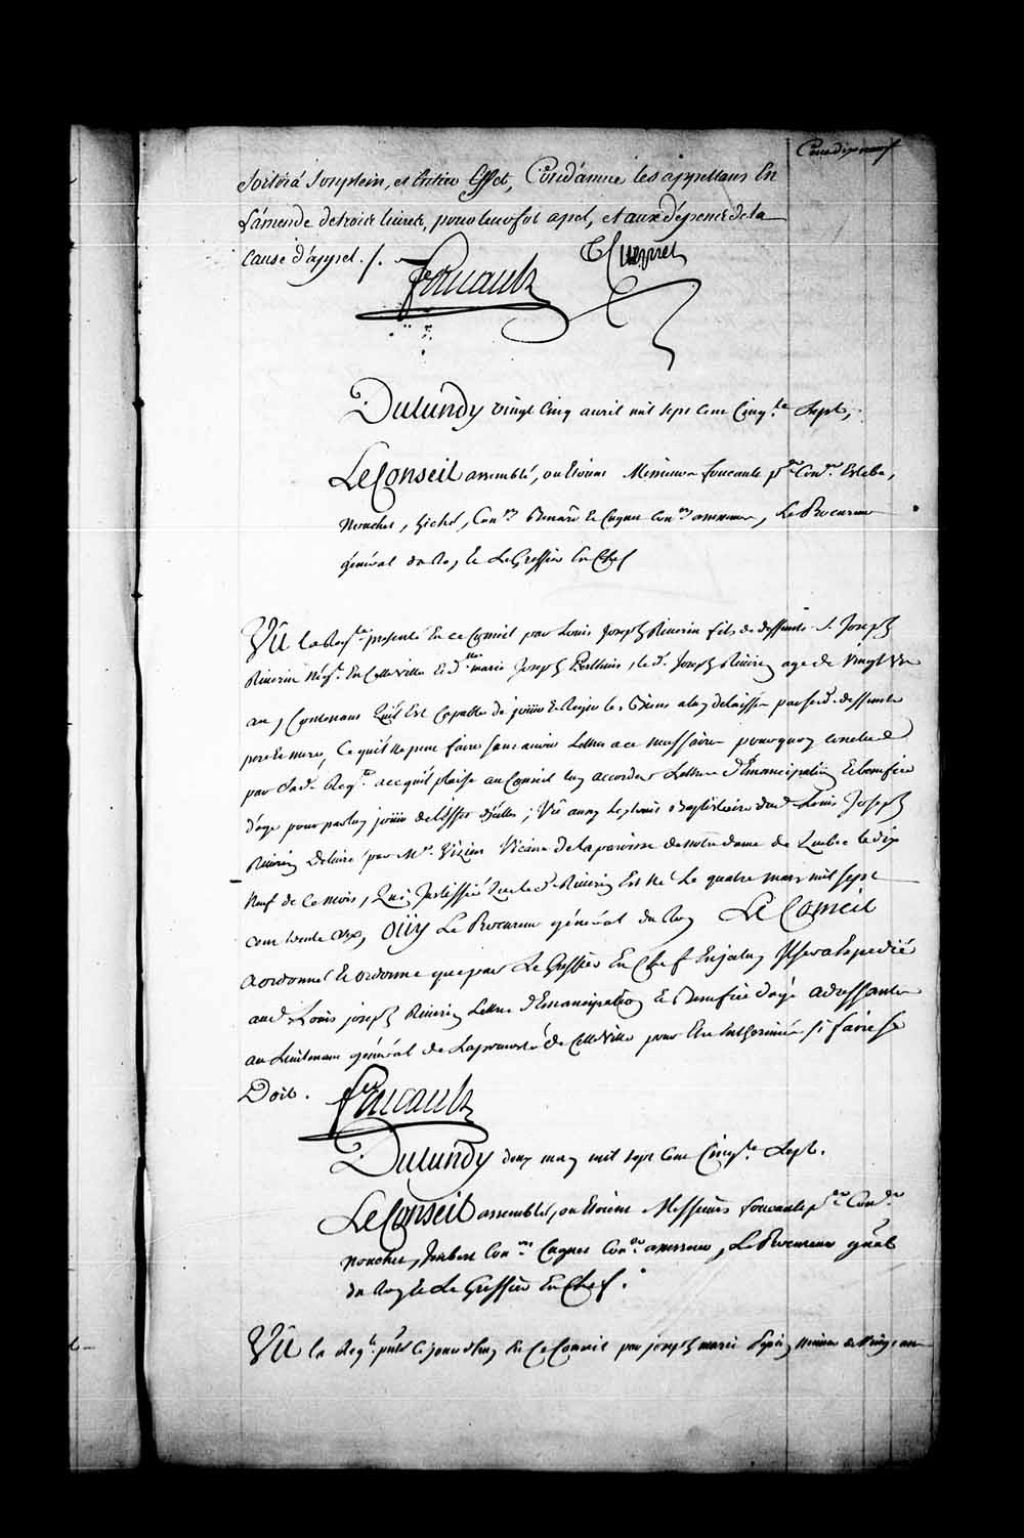 Cent dix neuf
sortira son plein, et Entier Effet, Condamne les appellans En
L'amende de trois livres, pour leur fol apel, et aux dépens de la
cause d'appel ./.
Guerret
Foucault
Du Lundy vingt Cinq avril mil sept cent Cinq.te Sept,
Le Conseil assemblé, ou Etoient Messieurs foucault p.er Con.er Estebe,
Nouchet, Gichó, Con.ers Benard et Cugnet con.ers assesseurs, Le Procureur
général du Roy et Le Greffier En Chef
Vû la Req.te presenté En ce Conseil par Louis Joseph Riverin fils de deffunts S. Joseph
Riverin Nég.t En Cette ville et d.lle marie Joseph Perthuis, led. Joseph Riverin agé de Vingt Un
an, Contenant Qu'il Est Capable de jouir et Regir les Biens a luy delaissés par sesd. deffunts
pere et mere, Ce qu'il ne peut faire sans avoir Lettres a ce necessaires pourquoy conclud
par Sad. Req.te a ce qu'il plaise au Conseil luy accorder Lettres d'Emancipation et benefice
d'age pour par luy jouir de l'effet d'Icelles; Vû aussy Lextrait Baptistaire dud. Louis Joseph
Riverin Delivré par M.r Vicaire de la paroisse de notre dame de Quebec le dix
Neuf de Ce mois, Qui Justiffie que led. Riverin Est Né Le quatre mars mil sept
cent trente six, Oüy Le Procureur général du Roy Le Conseil
a ordonné et ordonne que par Le Greffier En Chef En jceluy Il sera Expedié
aud. Louis joseph Riverin Lettres d'Emancipation et Benefice d'age adressantes
au Lieutenant général de La prevosté de Cette ville pour Etre Entherinées si faire se
Doit.
Foucault
Du Lundy deux may mil sept cent Cinq.te Sept.
Le Conseil assemblé, ou Etoient Messieurs foucault p.er Con.er
Nouchet, Imbert Con.ers Cugnet Con.er assesseur, Le Procureur gnál
du Roy et Le Greffier En Chef.
Vû la Req.te pnté Ce jourd'huy En Ce Conseil par joseph marie Pepin mineur de Vingt ans